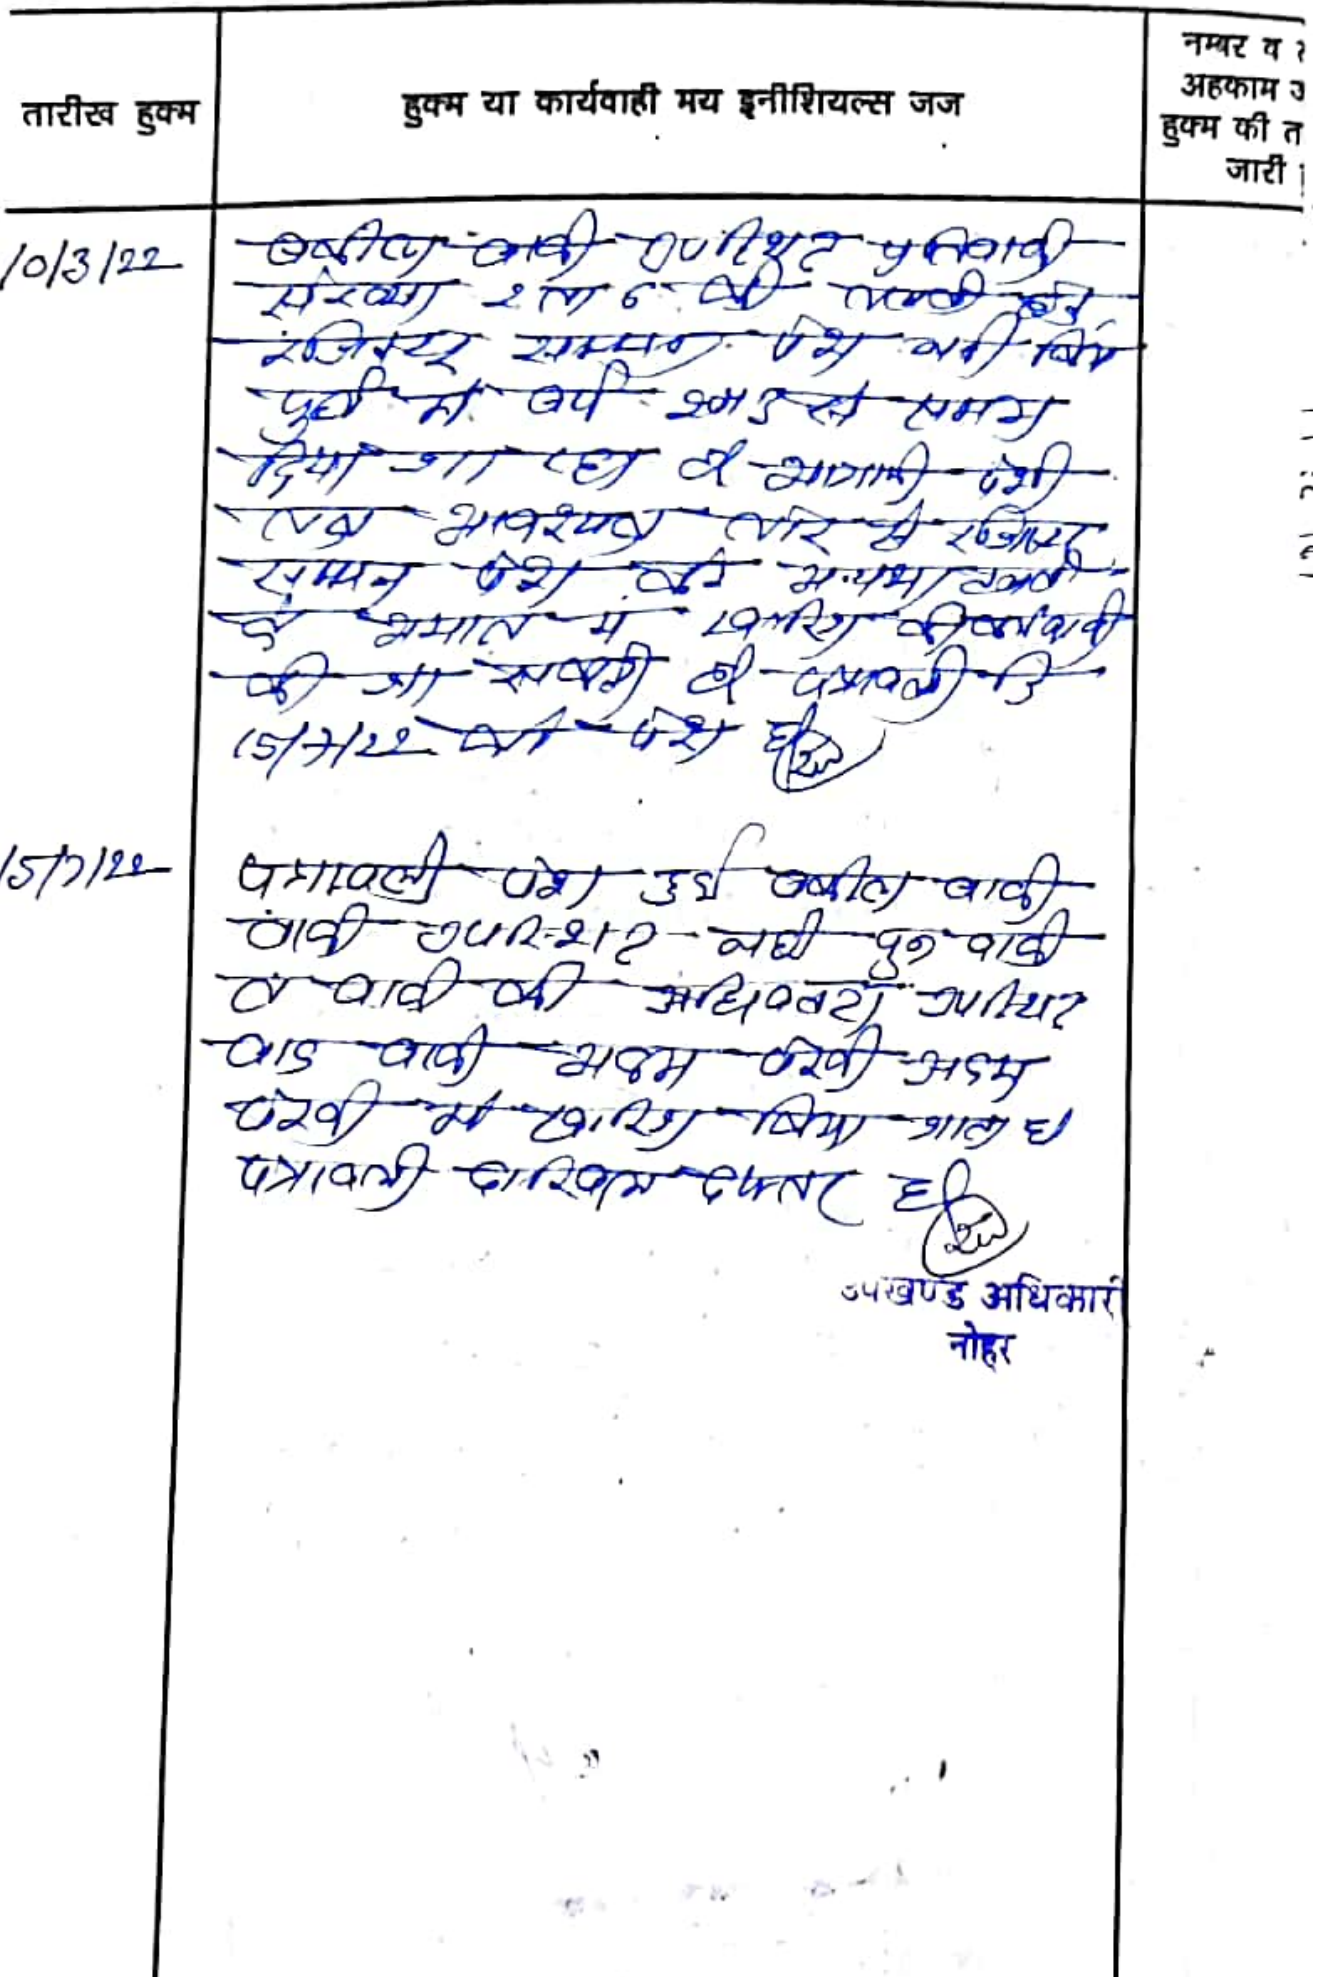 तारीख हुक्म
हुक्म या कार्यवाही मय इनीशियल्स जज
नम्बर व
अहकाम
हुक्म की त
जारी
10/3/22
वकील वादी उपस्थित प्रतिवादी
संख्या 2 ता 6 की तलबी हेतु
रजिस्टर सम्मन पेश नही किये
पूर्व में वर्ष से समय
दिया जा रहा है आगामी पेशी
तक आवश्यक तौर से रजिस्टर
सम्मन पेश करें अन्यथा तलबी
के अभाव में खारिज की कार्यवाही
की जा सकती है पत्रावली दि
15/7/22 को पेश हो
15/7/22
पत्रावली पेश हुई वकील वादी
वादी उपस्थित नही पुनः वादी
व वादी की उपस्थित
वाद वादी अदम पैरवी अदम
पैरवी में खारिज किया जाता है
पत्रावली दाखिल दफ्तर हो
उपखण्ड अधिकारी
नोहर